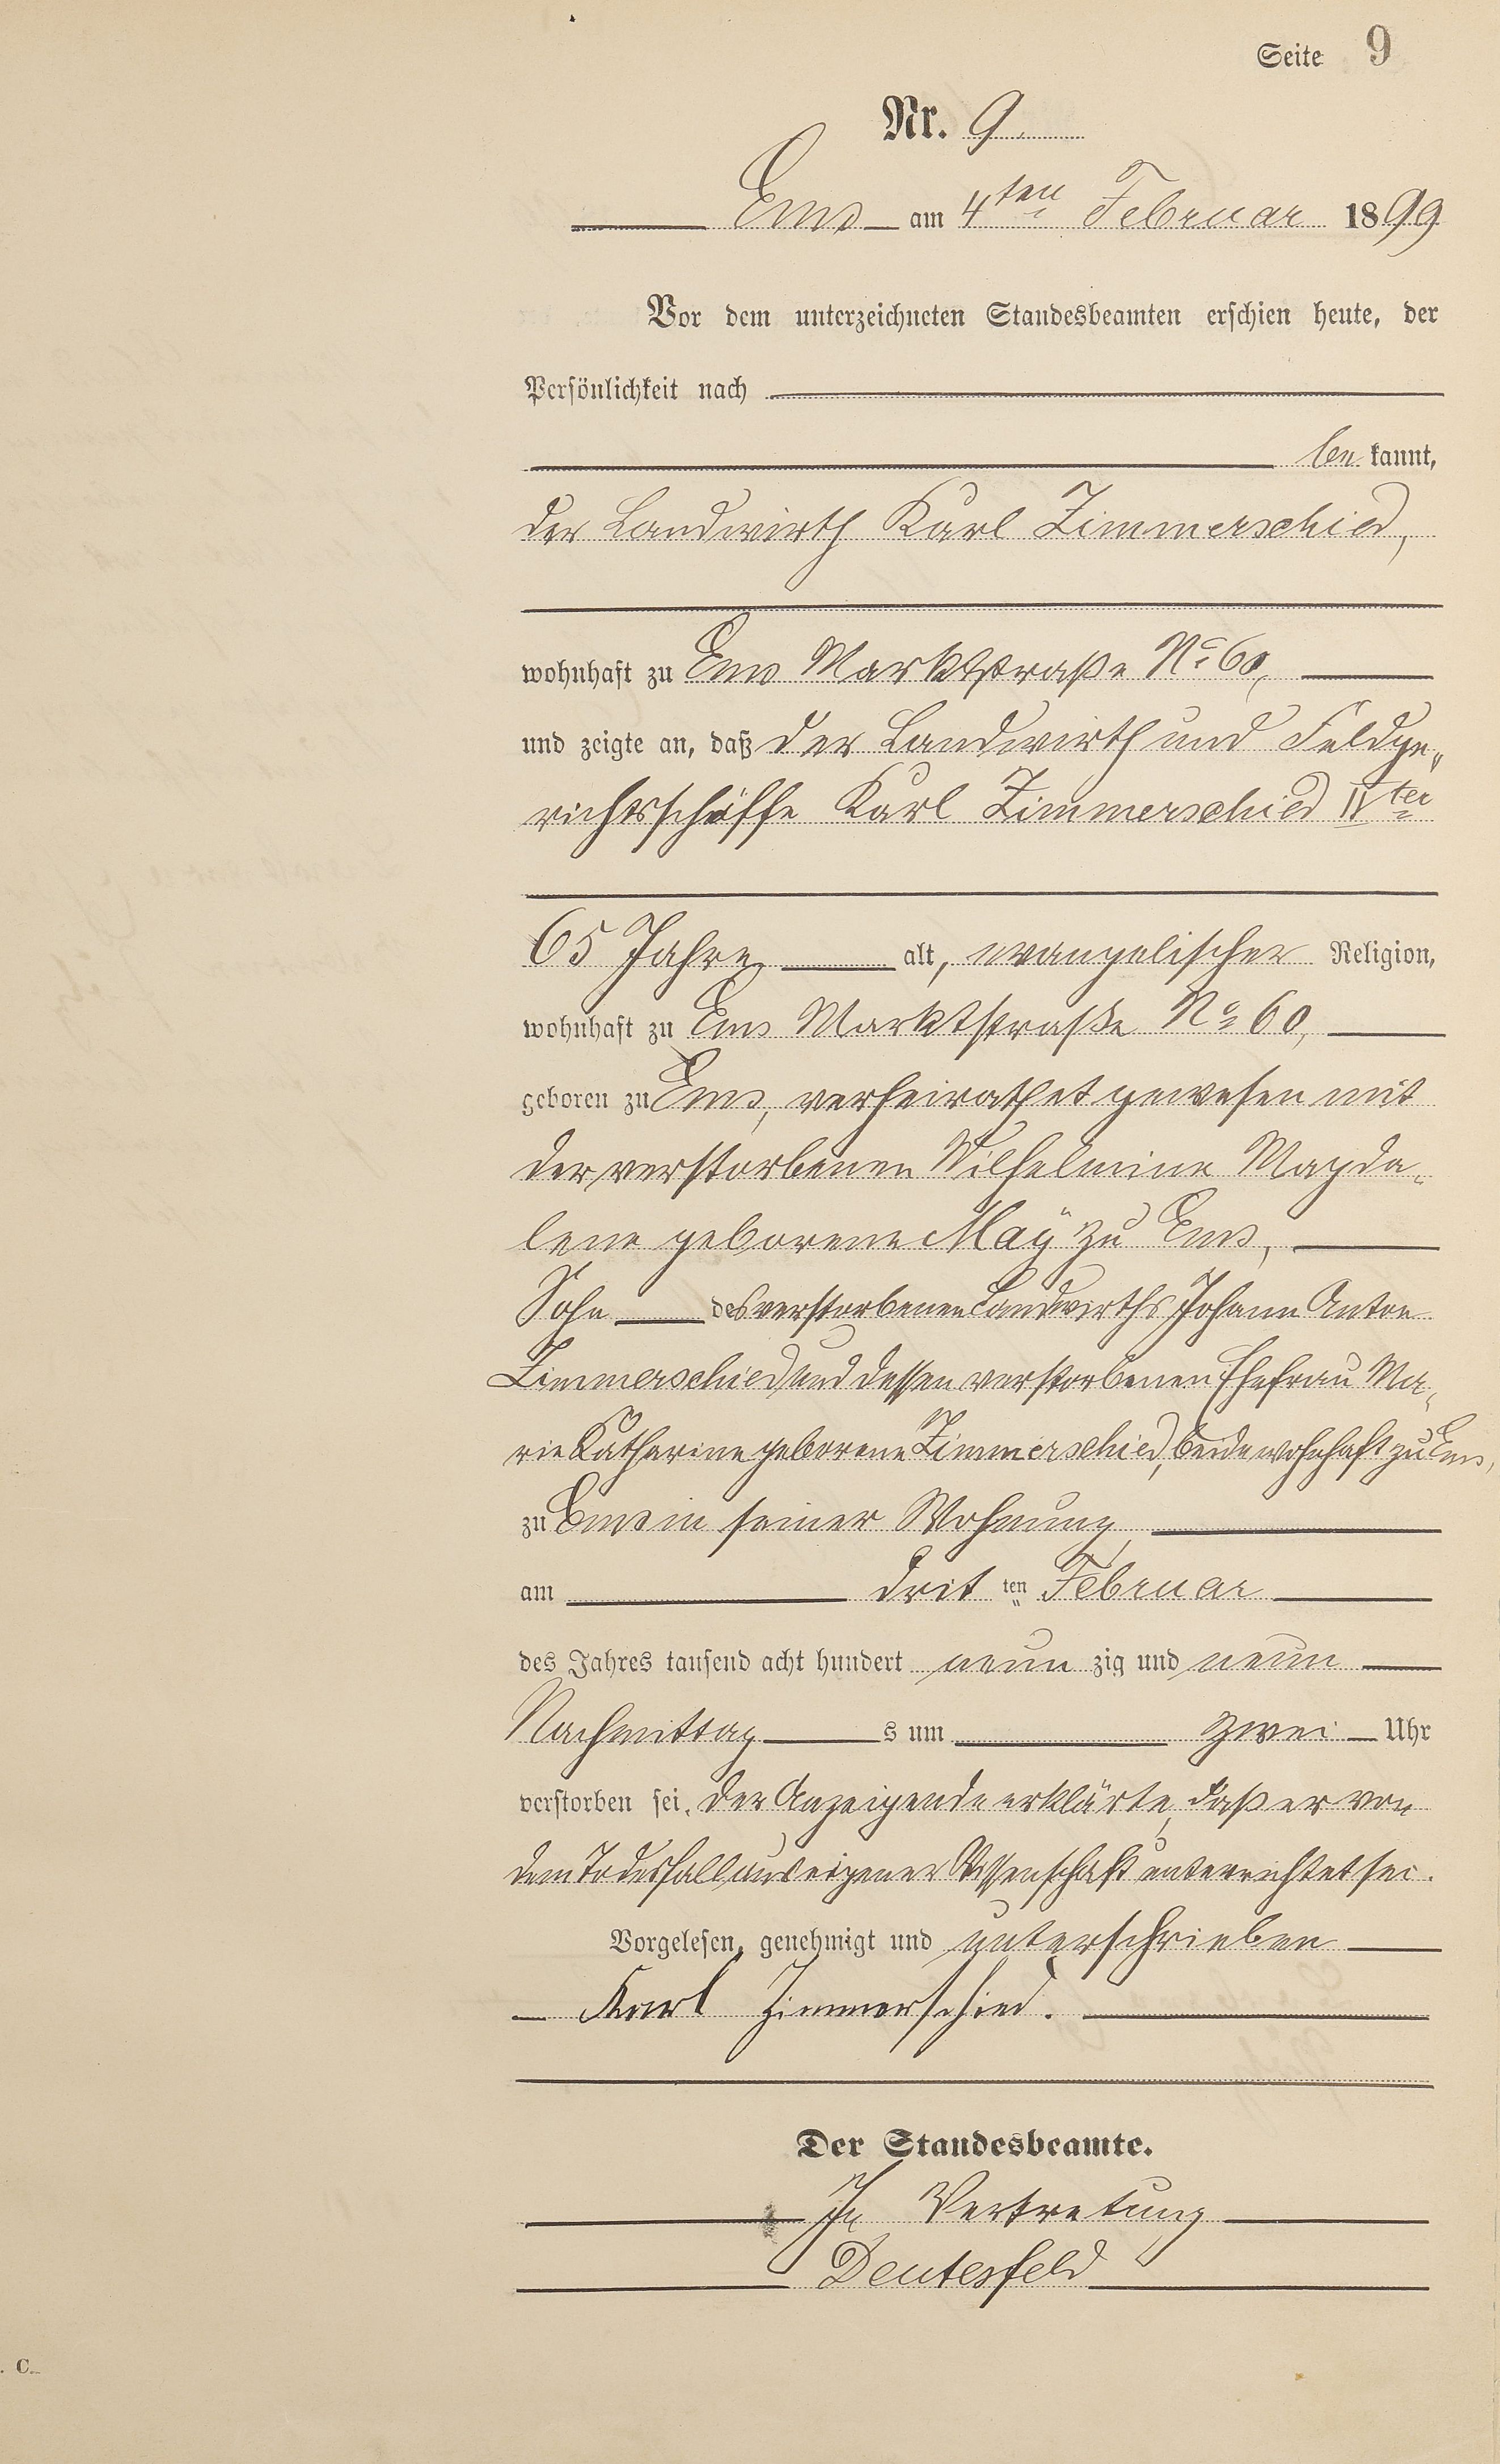 Seite 9
Nr. 9.
Ems am 4ten Februar 1899
Vor dem unterzeichneten Standesbeamten erschien heute, der
Persönlichkeit nach
be kannt,
der Landwirth Karl Zimmerschied,
wohnhaft zu Ems Marktstraße No 60,
und zeigte an, daß der Landwirth und Feldge„
richtsschöffe Karl Zimmerschied IIter
65 Jahre, alt, evangelischer Religion,
wohnhaft zu Ems Marktstraße No 60,
geboren zu Ems, verheirathet gewesen mit
der verstorbenen Wilhelmine Magda„
lene geborene Maÿ zu Ems,
Sohn des verstorbenen Landwirths Johann Anton
Zimmerschied und dessen verstorbenen Ehefrau Ma„
rie Katharine geborene Zimmerschied, beide wohnhaft zu Ems,
zu Ems in seiner Wohnung,
am drit ten Februar
des Jahres tausend acht hundert neun zig und neun
Nachmittag s um zwei Uhr
verstorben sei. Der Anzeigende erklärte, daß er von
dem Todesfall aus eigener Wissenschaft unterrichtet sei.
Vorgelesen, genehmigt und unterschrieben
Karl Zimmerschied.
Der Standesbeamte.
In Vertretung
Deutesfeld
. C.